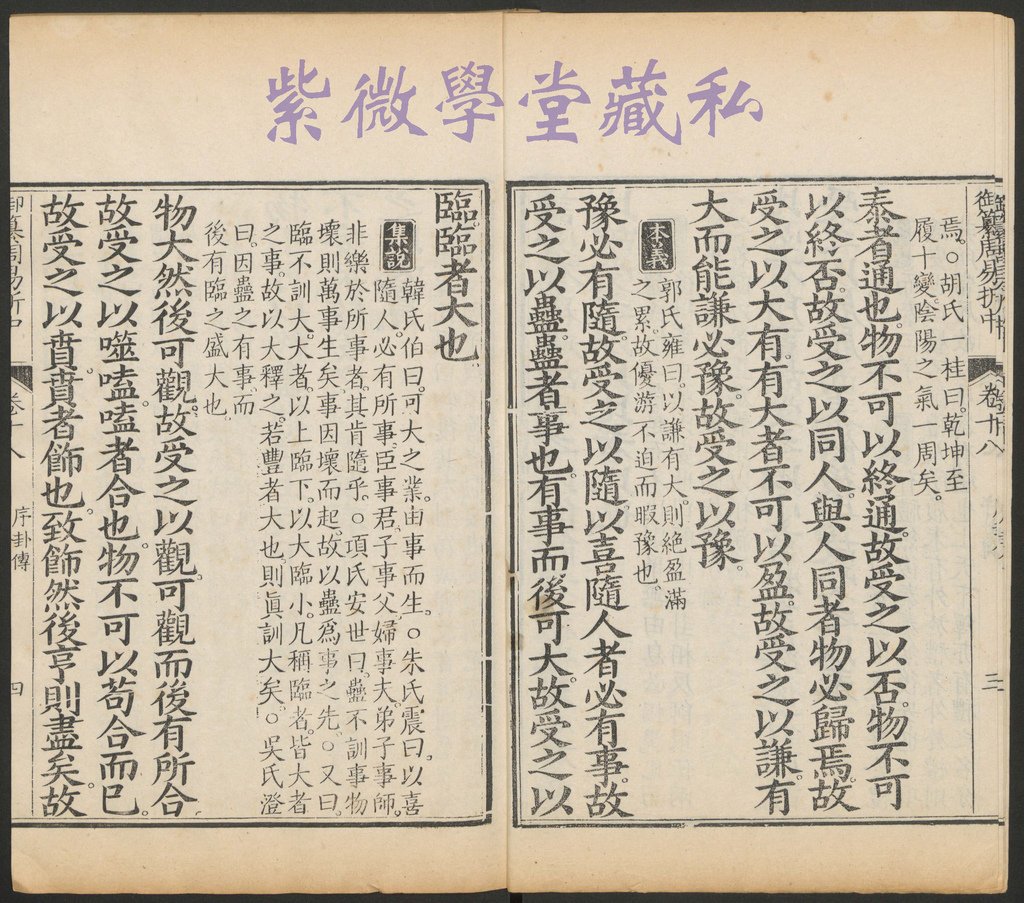 紫微學堂藏私
御纂周易折中 卷十八 三
焉。○胡氏一桂曰。乾坤至
履十變。陰陽之氣一周矣。
泰者通也。物不可以終通。故受之以否。物不可
以終否。故受之以同人。與人同者物必歸焉。故
受之以大有。有大者不可以盈。故受之以謙。有
大而能謙必豫。故受之以豫。
本義
郭氏雍曰。以謙有大。則絶盈滿
之累。故優游不迫而暇豫也。
豫必有隨。故受之以隨。以喜隨人者必有事。故
受之以蠱。蠱者事也。有事而後可大。故受之以
臨。臨者大也。
集說
韓氏伯曰。可大之業。由事而生。○朱氏震曰。以喜
隨人。必有所事。臣事君。子事父。婦事夫。弟子事師。
非樂於所事者。其肯隨乎。○項氏安世曰。蠱不訓事。物
壞則萬事生矣。事因壞而起。故以蠱爲事之先。○又曰。
臨不訓大。大者。以上臨下。以大臨小。凡稱臨者。皆大者
之事。故以大釋之。若豐者大也。則眞訓大矣。○吳氏澄
曰。因蠱之有事。而
後有臨之盛大也。
物大然後可觀。故受之以觀。可觀而後有所合。
故受之以噬嗑。嗑者合也。物不可以苟合而已。
故受之以賁。賁者飾也。致飾然後亨則盡矣。故
御纂周易折中 卷十八 序卦傳 四